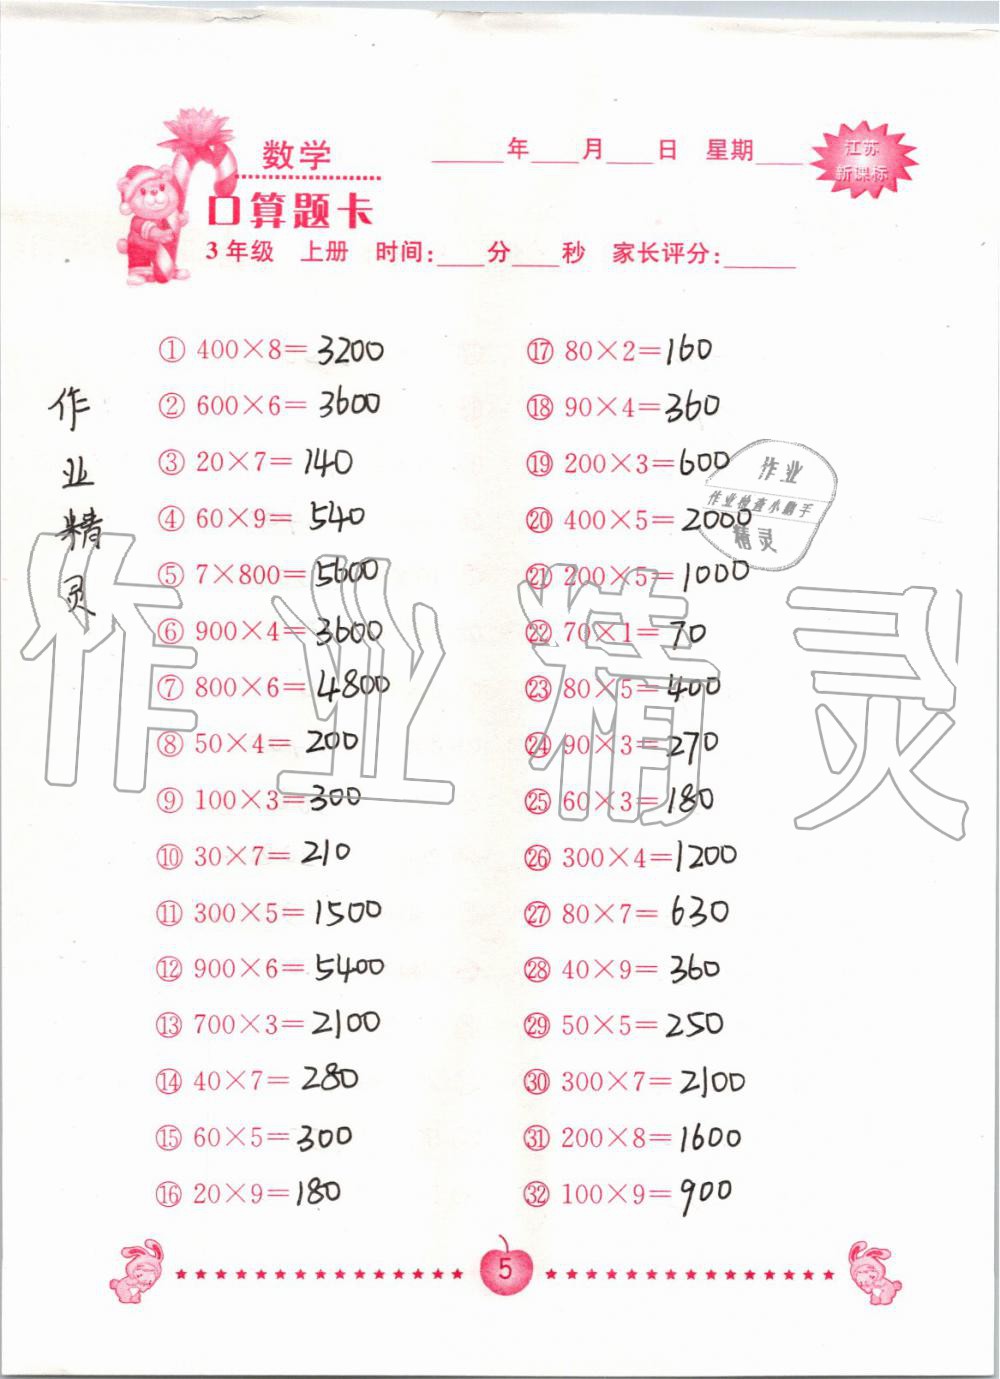 数学
____年___月___日 星期___
江苏
新课标
口算题卡
3年级 上册 时间:___分___秒 家长评分:____
①400×8=3200
②600×6=3600
③20×7=140
④60×9=540
⑤7×800=5600
⑥900×4=3600
⑦800×6=4800
⑧50×4=200
⑨100×3=300
⑩30×7=210
⑪300×5=1500
⑫900×6=5400
⑬700×3=2100
⑭40×7=280
⑮60×5=300
⑯20×9=180
⑰80×2=160
⑱90×4=360
⑲200×3=600
⑳400×5=2000
㉑200×5=1000
㉒70×1=70
㉓80×5=400
㉔90×3=270
㉕60×3=180
㉖300×4=1200
㉗80×7=630
㉘40×9=360
㉙50×5=250
㉚300×7=2100
㉛200×8=1600
㉜100×9=900
作业精灵
作业
作业检查小帮手
精灵
作业精灵
5